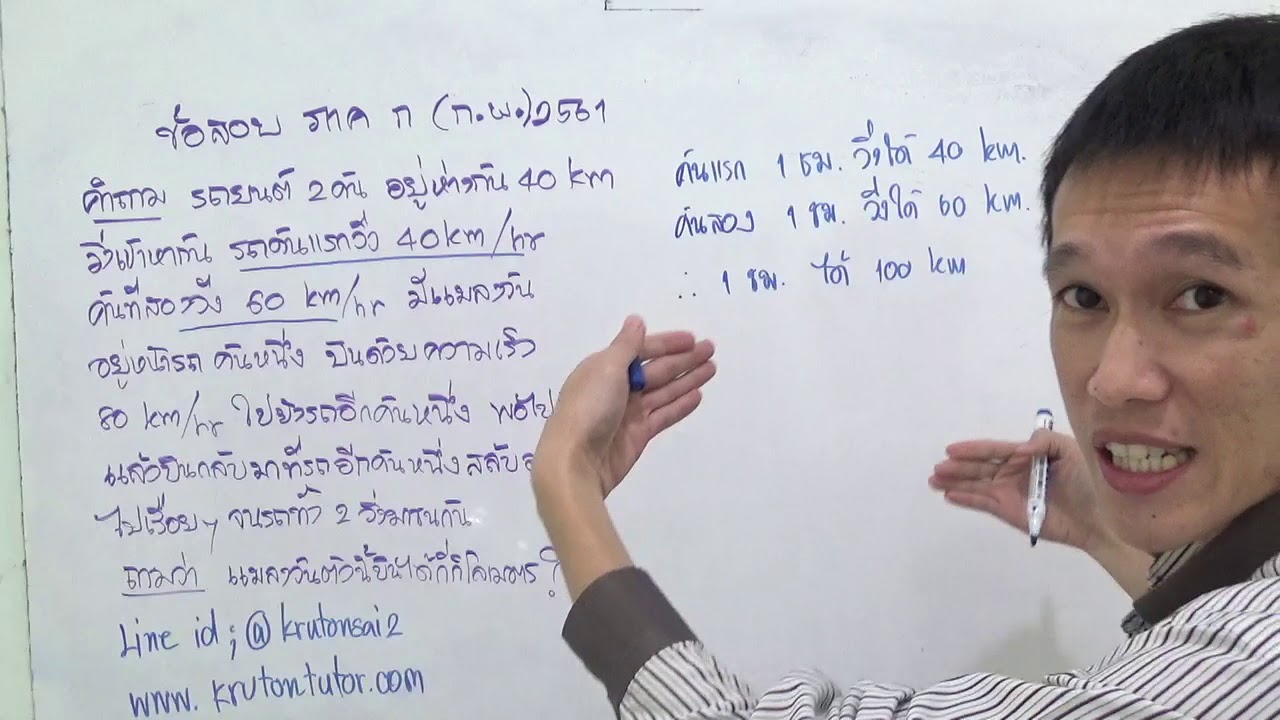 ข้อสอบ ภาค ก (ก.พ.) 2561
คำถาม รถยนต์ 2 คัน อยู่ห่างกัน 40 km
วิ่งเข้าหากัน รถคันแรกวิ่ง 40 km/hr
คันที่สองวิ่ง 60 km/hr มีแมลงวัน
อยู่หน้ารถ คันหนึ่ง บินด้วยความเร็ว
80 km/hr ไปยังรถอีกคันหนึ่ง พอไป
แล้วบินกลับมาที่รถอีกคันหนึ่ง สลับ
ไปเรื่อยๆ จนรถทั้ง 2 วิ่งมาชนกัน
ถามว่า แมลงวันตัวนี้บินได้กี่กิโลเมตร?
Line id ; @krutonsai2
www.krutontutor.com
คันแรก 1 ชม. วิ่งได้ 40 km.
คันสอง 1 ชม. วิ่งได้ 60 km.
∴ 1 ชม. ได้ 100 km